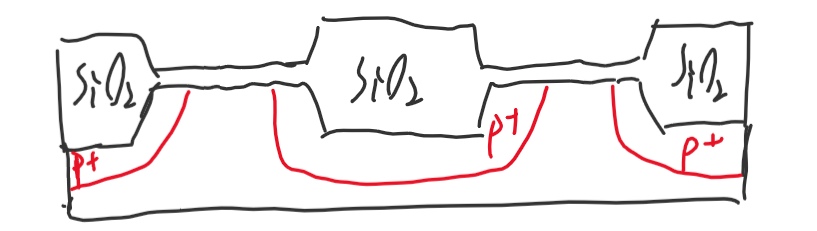 SiO2 SiO2 SiO2
p+ p+ p+